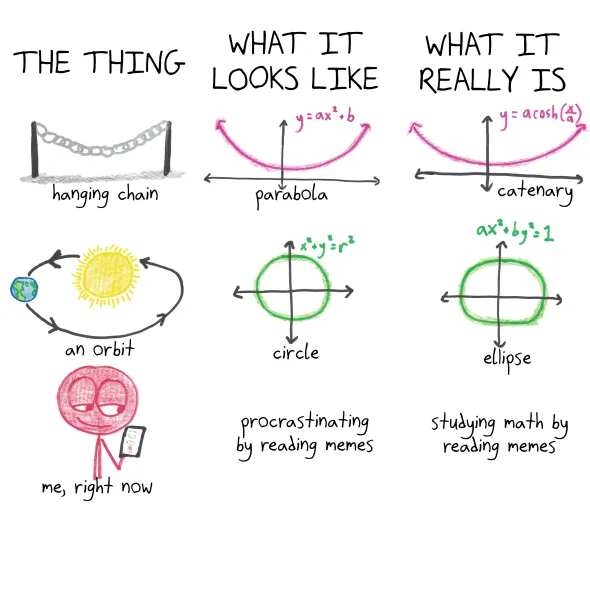 THE THING
WHAT IT
LOOKS LIKE
WHAT IT
REALLY IS
hanging chain
y=ax²+b
parabola
y=acosh(x/a)
catenary
an orbit
x²+y²=r²
circle
ax²+by²=1
ellipse
me, right now
procrastinating
by reading memes
studying math by
reading memes